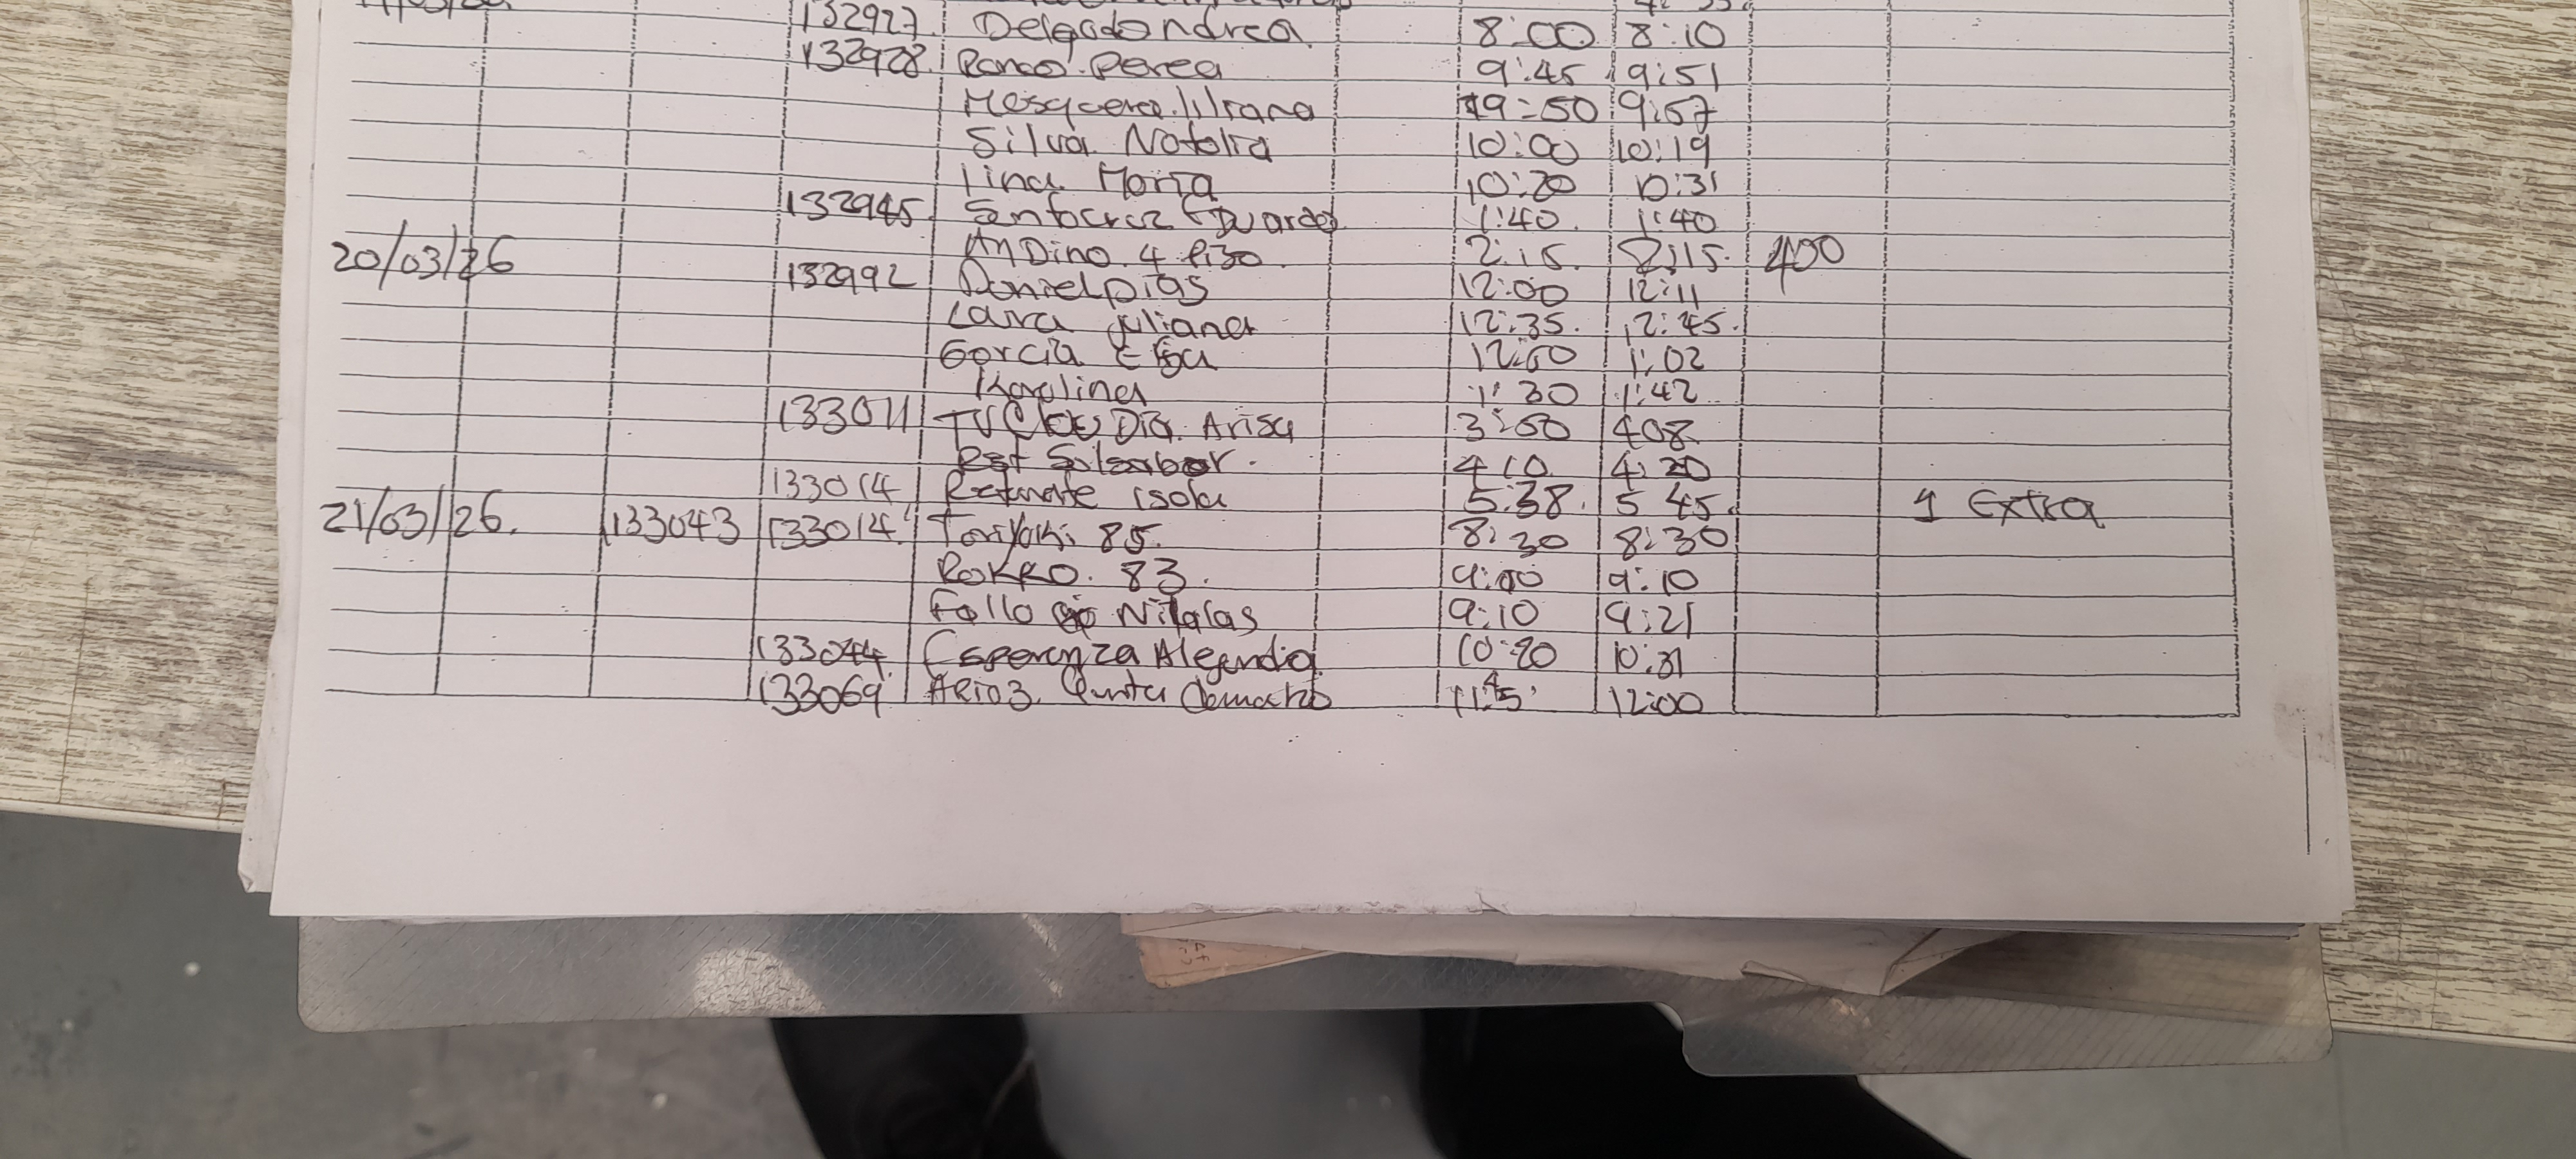 132927 Delgado Andrea 8:00 8:10
132928 Ponco Perea 9:45 9:51
Mosquera liliana 9:50 9:57
Silva Natalia 10:00 10:19
lina Maria 10:20 10:31
132945 Santacruz Eduardo 1:40 1:40
20/03/26 AnDino 4 Piso 2:15 2:15 400
132992 Daniel Dias 12:00 12:11
Lara juliana 12:35 12:45
Garcia 12:50 1:02
Karolina 1:30 1:42
133011 Dia. Arisa 3:50 408
Rest 4 10 4:20
133014 isola 5:38 5 45 1 Extra
21/03/26 133043 133014 Toriyaki 85 8:30 8:30
ROKKO 83 9:00 9:10
Fallo 9:10 9:21
133044 Esperanza Alejandia 10:20 10:31
133069 Quinta Camacho 11:45 12:00